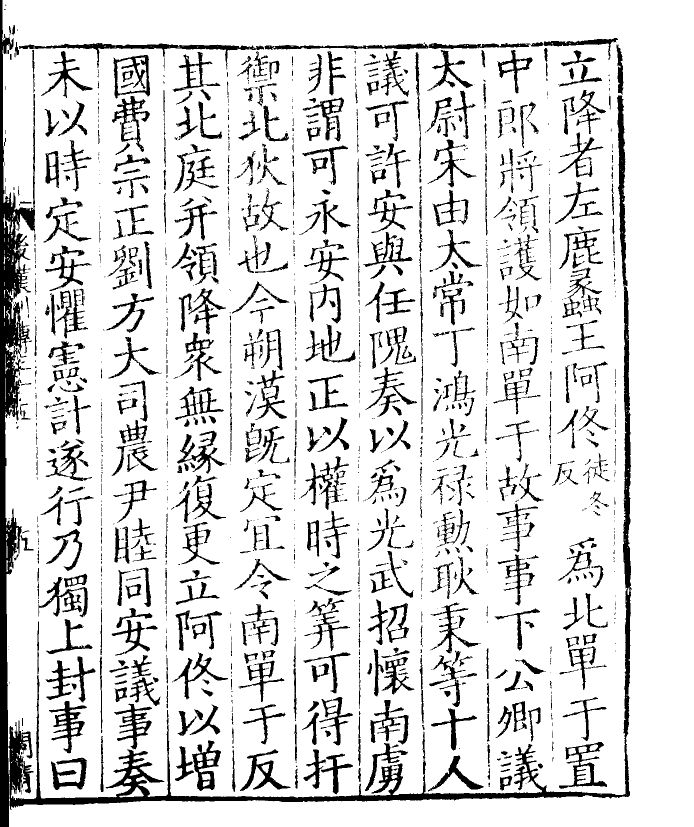 立降者左鹿蠡王阿佟徒冬反爲北單于置
中郎將領護如南單于故事事下公卿議
太尉宋由太常丁鴻光禄勲耿秉等十人
議可許安與任隗奏以爲光武招懷南虜
非謂可永安内地正以權時之筭可得扞
禦北狄故也今朔漠旣定宜令南單于反
其北庭并領降衆無緣復更立阿佟以增
國費宗正劉方大司農尹睦同安議事奏
未以時定安懼憲計遂行乃獨上封事曰
後漢列傳三十五
五